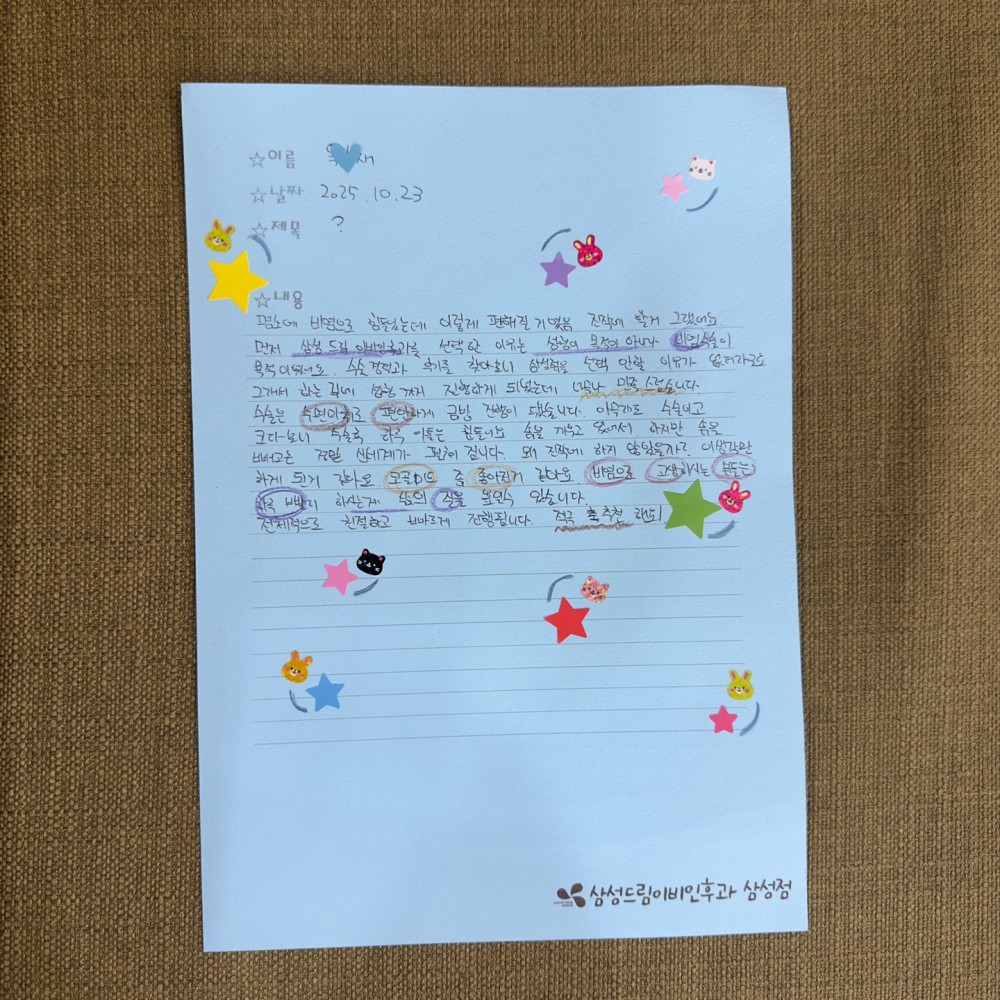 ☆이름
☆날짜 2025.10.23
☆제목 ?
☆내용
평소에 비염으로 힘들었는데 이렇게 편해질 거였음 진작에 할걸 그랬어요.
먼저 삼성드림이비인후과를 선택한 이유는 성형이 목적이 아니라 비염수술이
목적이였어요. 수술 경력과 후기를 찾다보니 삼성점을 선택 안할 이유가 없더라구요
그래서 하는 김에 성형까지 진행하게 되었는데 너무나 만족스럽습니다.
수술은 수면마취로 편안하게 금방 진행이 됐습니다. 아무래도 수술이고
크다보니 수술후 하루 이틀은 힘들어요 솜을 끼우고 있어서 하지만 솜을
빼고는 정말 신세계가 펼쳐집니다. 왜 진작에 하지 않았을까? 이생각만
하게 되거 같아요 코골이도 좀 좋아진거 같아요 비염으로 고생하시는 분들은
하루 빨리 하시는게 삶의 질을 높일수 있습니다.
전체적으로 친절하고 빠르게 진행됩니다. 적극 추천 라도!
삼성드림이비인후과 삼성점